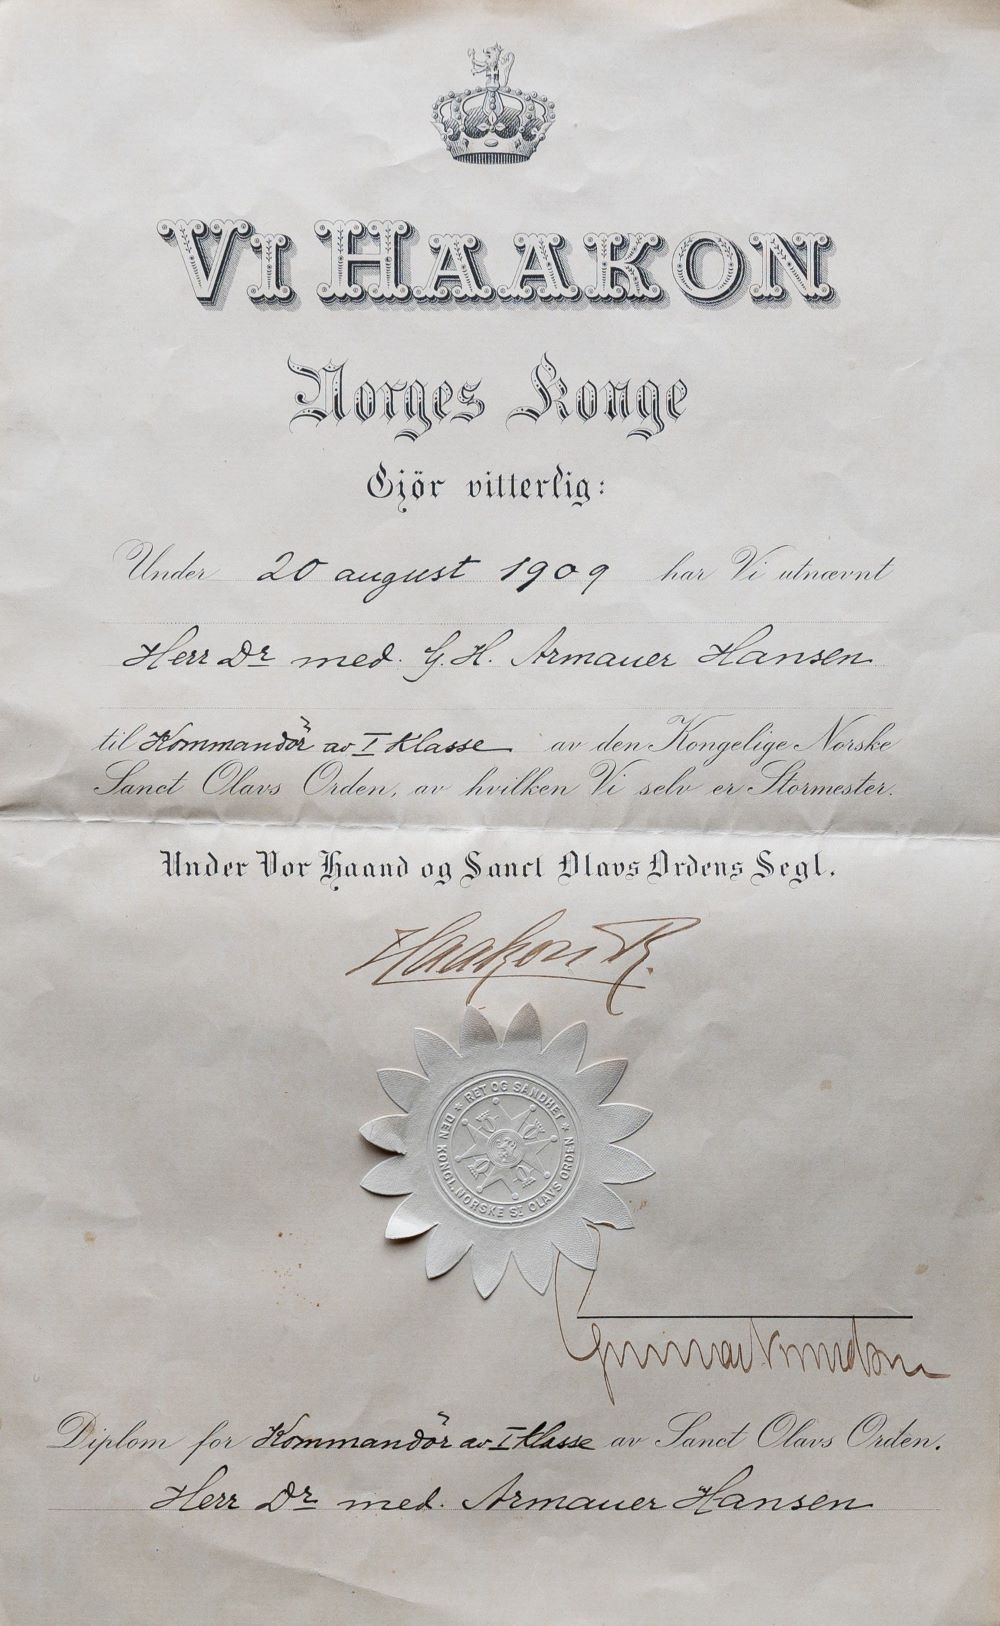 VI HAAKON
Norges Konge
Gjör vitterlig:
Under 20 august 1909 har Vi utnævnt
Herr Dr. med. G. H. Armauer Hansen
til Kommandör av I Klasse av den Kongelige Norske
Sanct Olavs Orden, av hvilken Vi selv er Stormester.
Under Vor Haand og Sanct Olavs Ordens Segl.
Haakon R.
* RET OG SANDHET *
DEN KONGL. NORSKE ST OLAVS ORDEN
Gunnar Knudsen
Diplom for Kommandör av I Klasse av Sanct Olavs Orden.
Herr Dr. med. Armauer Hansen